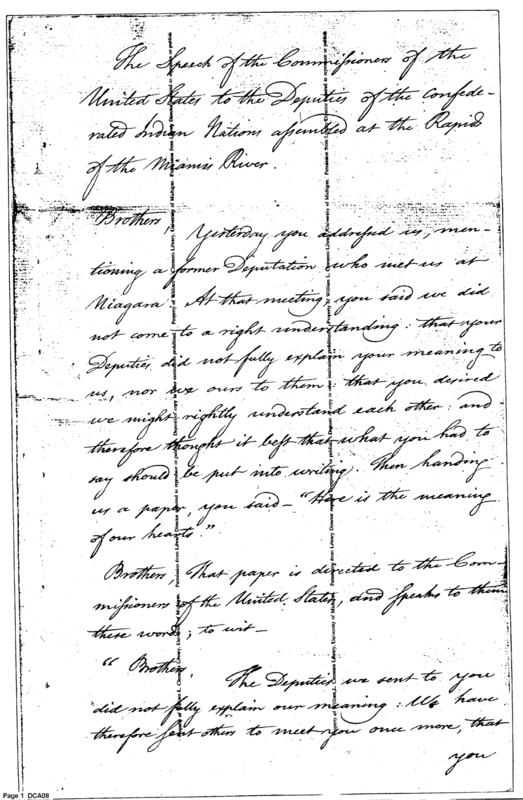 The Speech of the Commissioners of the
United States to the Deputies of the Confede-
rated Indian Nations assembled at the Rapids
of the Miamis River.
Brothers,
Yesterday you addressed us, men-
tioning a former Deputation who met us at
Niagara. At that meeting, you said we did
not come to a right understanding: that your
Deputies did not fully explain your meaning to
us, nor we ours to them: that you desired
we might rightly understand each other; and
therefore thought it best that what you had to
say should be put into writing. Then handing
us a paper, you said – "Here is the meaning
of our hearts."
Brothers, That paper is directed to the Com-
missioners of the United States, and speaks to them
these words; to wit –
" Brothers,
The Deputies we sent to you
did not fully explain our meaning: We have
therefore sent others to meet you once more, that
you
Page 1 DCA08